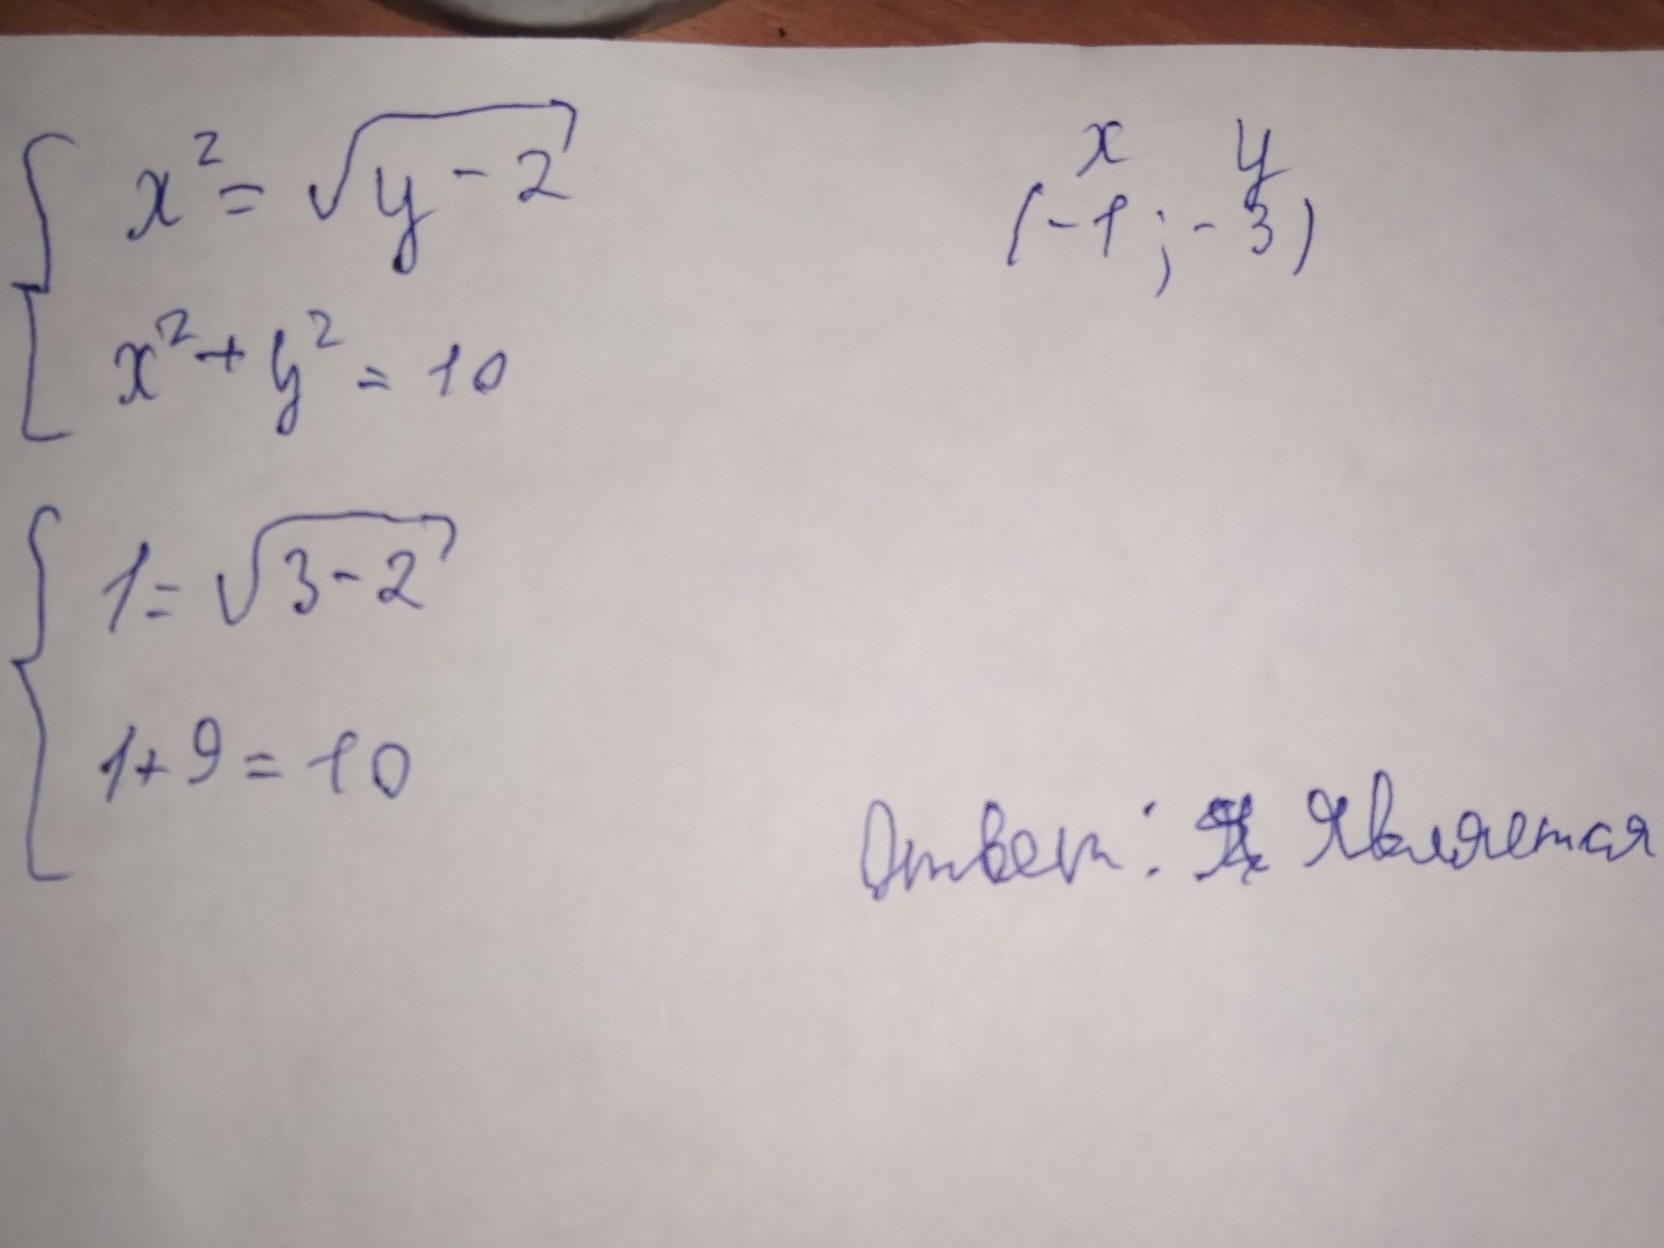 x² = √(y - 2)
x² + y² = 10
x y
(-1; -3)
1 = √(3 - 2)
1 + 9 = 10
Ответ: Является